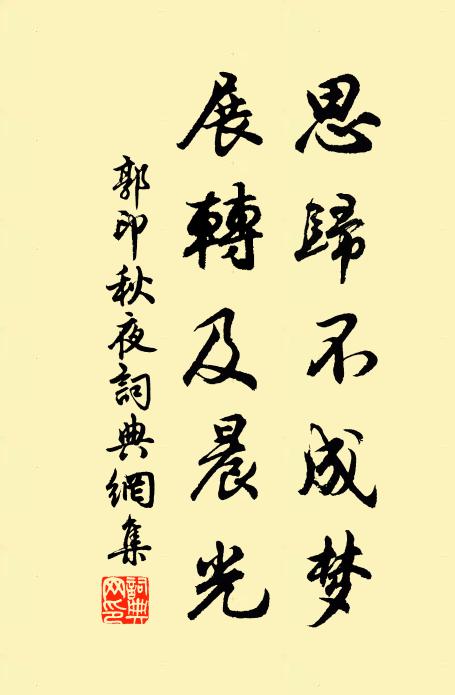 思歸不成梦
展轉及晨光
郭印秋夜詞典網集
詞典網印